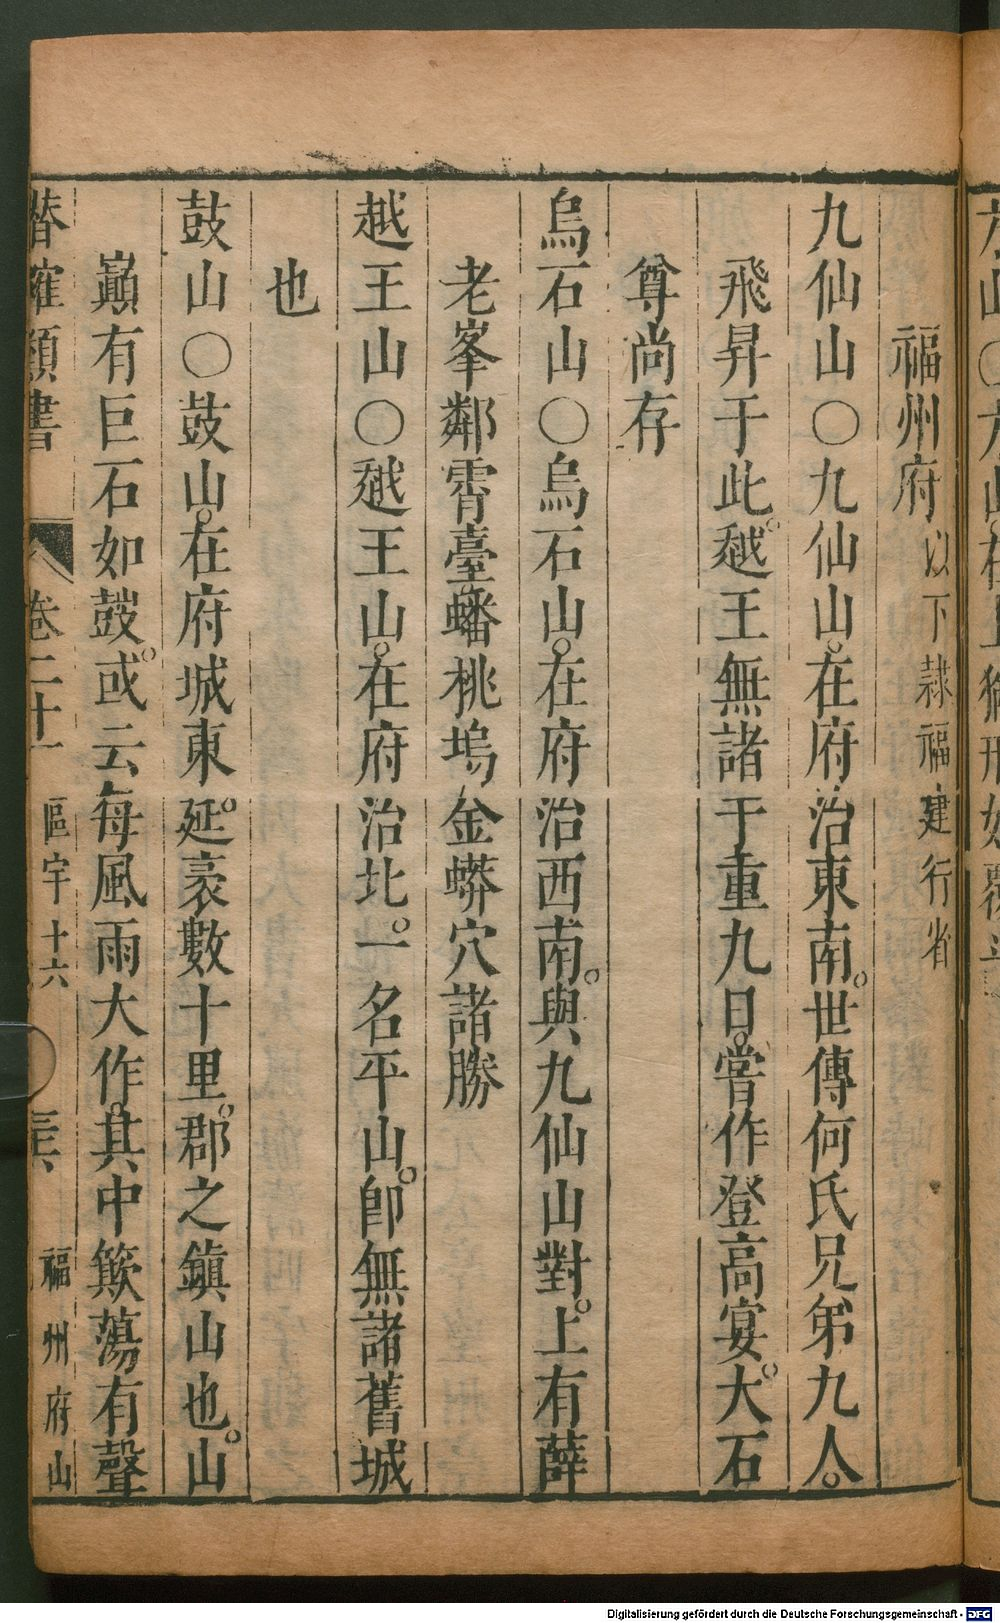 福州府 以下隸福建行省
九仙山○九仙山。在府治東南。世傳何氏兄弟九人。
飛昇于此。越王無諸于重九日。嘗作登高宴。大石
尊尚存
烏石山○烏石山。在府治西南。與九仙山對。上有薛
老峯鄰霄臺蟠桃塢金蟒穴諸勝
越王山○越王山。在府治北。一名平山。卽無諸舊城
也
鼓山○鼓山。在府城東。延袤數十里。郡之鎮山也。山
巔有巨石如鼓。或云每風雨大作。其中簸蕩有聲
潛確類書 卷二十一 區宇十六 福州府山
Digitalisierung gefördert durch die Deutsche Forschungsgemeinschaft - DFG